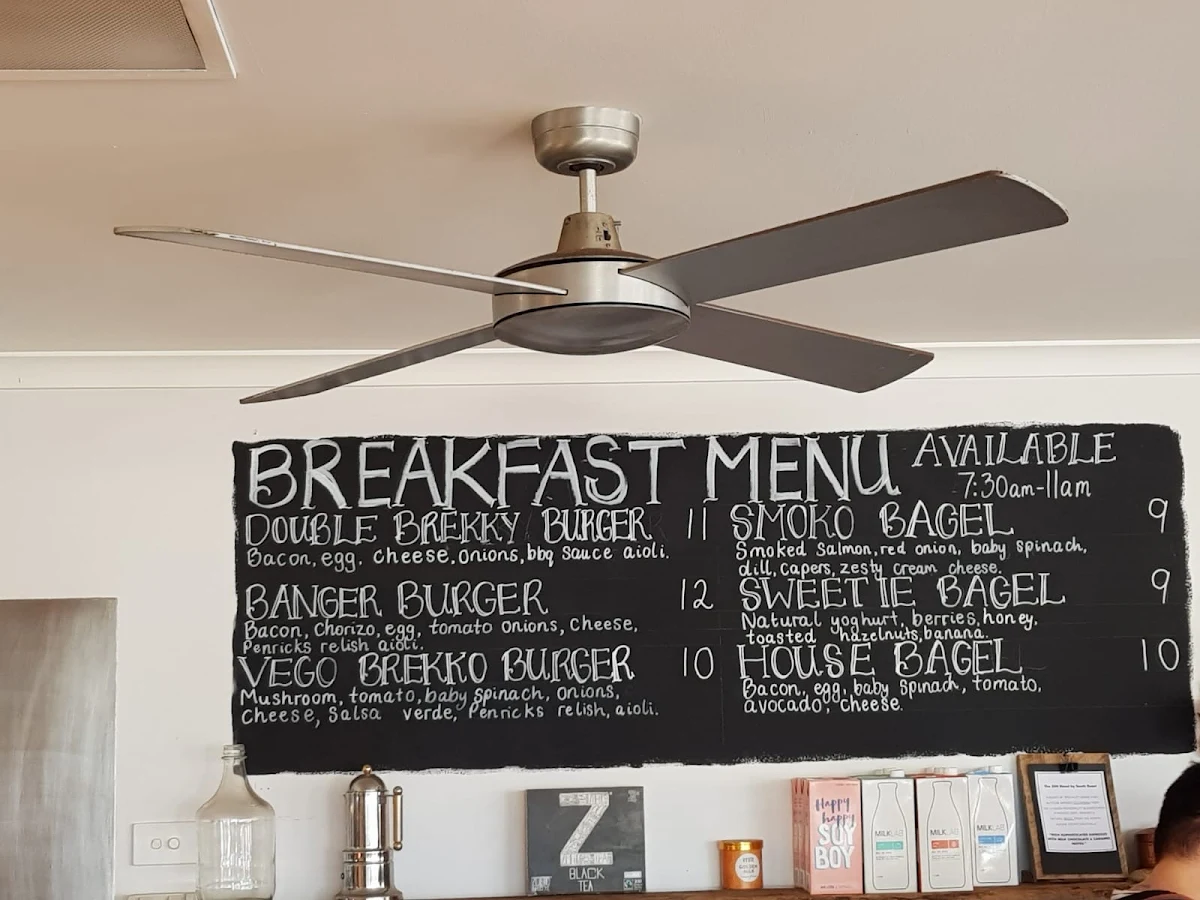 BREAKFAST MENU AVAILABLE
7:30am-11am
DOUBLE BREKKY BURGER 11
Bacon, egg. cheese, onions, bbq sauce aioli.
BANGER BURGER 12
Bacon, Chorizo, egg, tomato onions, cheese,
Penricks relish aioli.
VEGO BREKKO BURGER 10
Mushroom, tomato, baby spinach, onions,
Cheese, Salsa verde, Penricks relish, aioli.
SMOKO BAGEL 9
Smoked Salmon, red onion, baby spinach,
dill, capers, zesty cream cheese.
SWEETIE BAGEL 9
Natural yoghurt, berries, honey,
toasted hazelnuts, banana.
HOUSE BAGEL 10
Bacon, egg, baby spinach, tomato,
avocado, cheese.
Z
BLACK
TEA
Happy
happy
SOY
BOY
MILKLAB
MILKLAB
MILKLAB